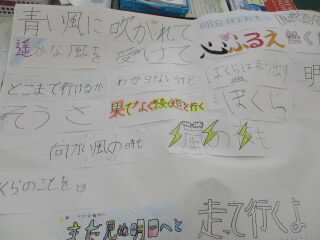 青い風に吹かれて
遥かな風を
受けて
心ふるえ
どこまで行けるか
わからないけど
ぼくらは走り出す
そうさ
果てなく続く道を行く
ぼくら
向かい風の時も
嵐の時も
くらのことを
まだ見ぬ明日へと
走って行くよ
明